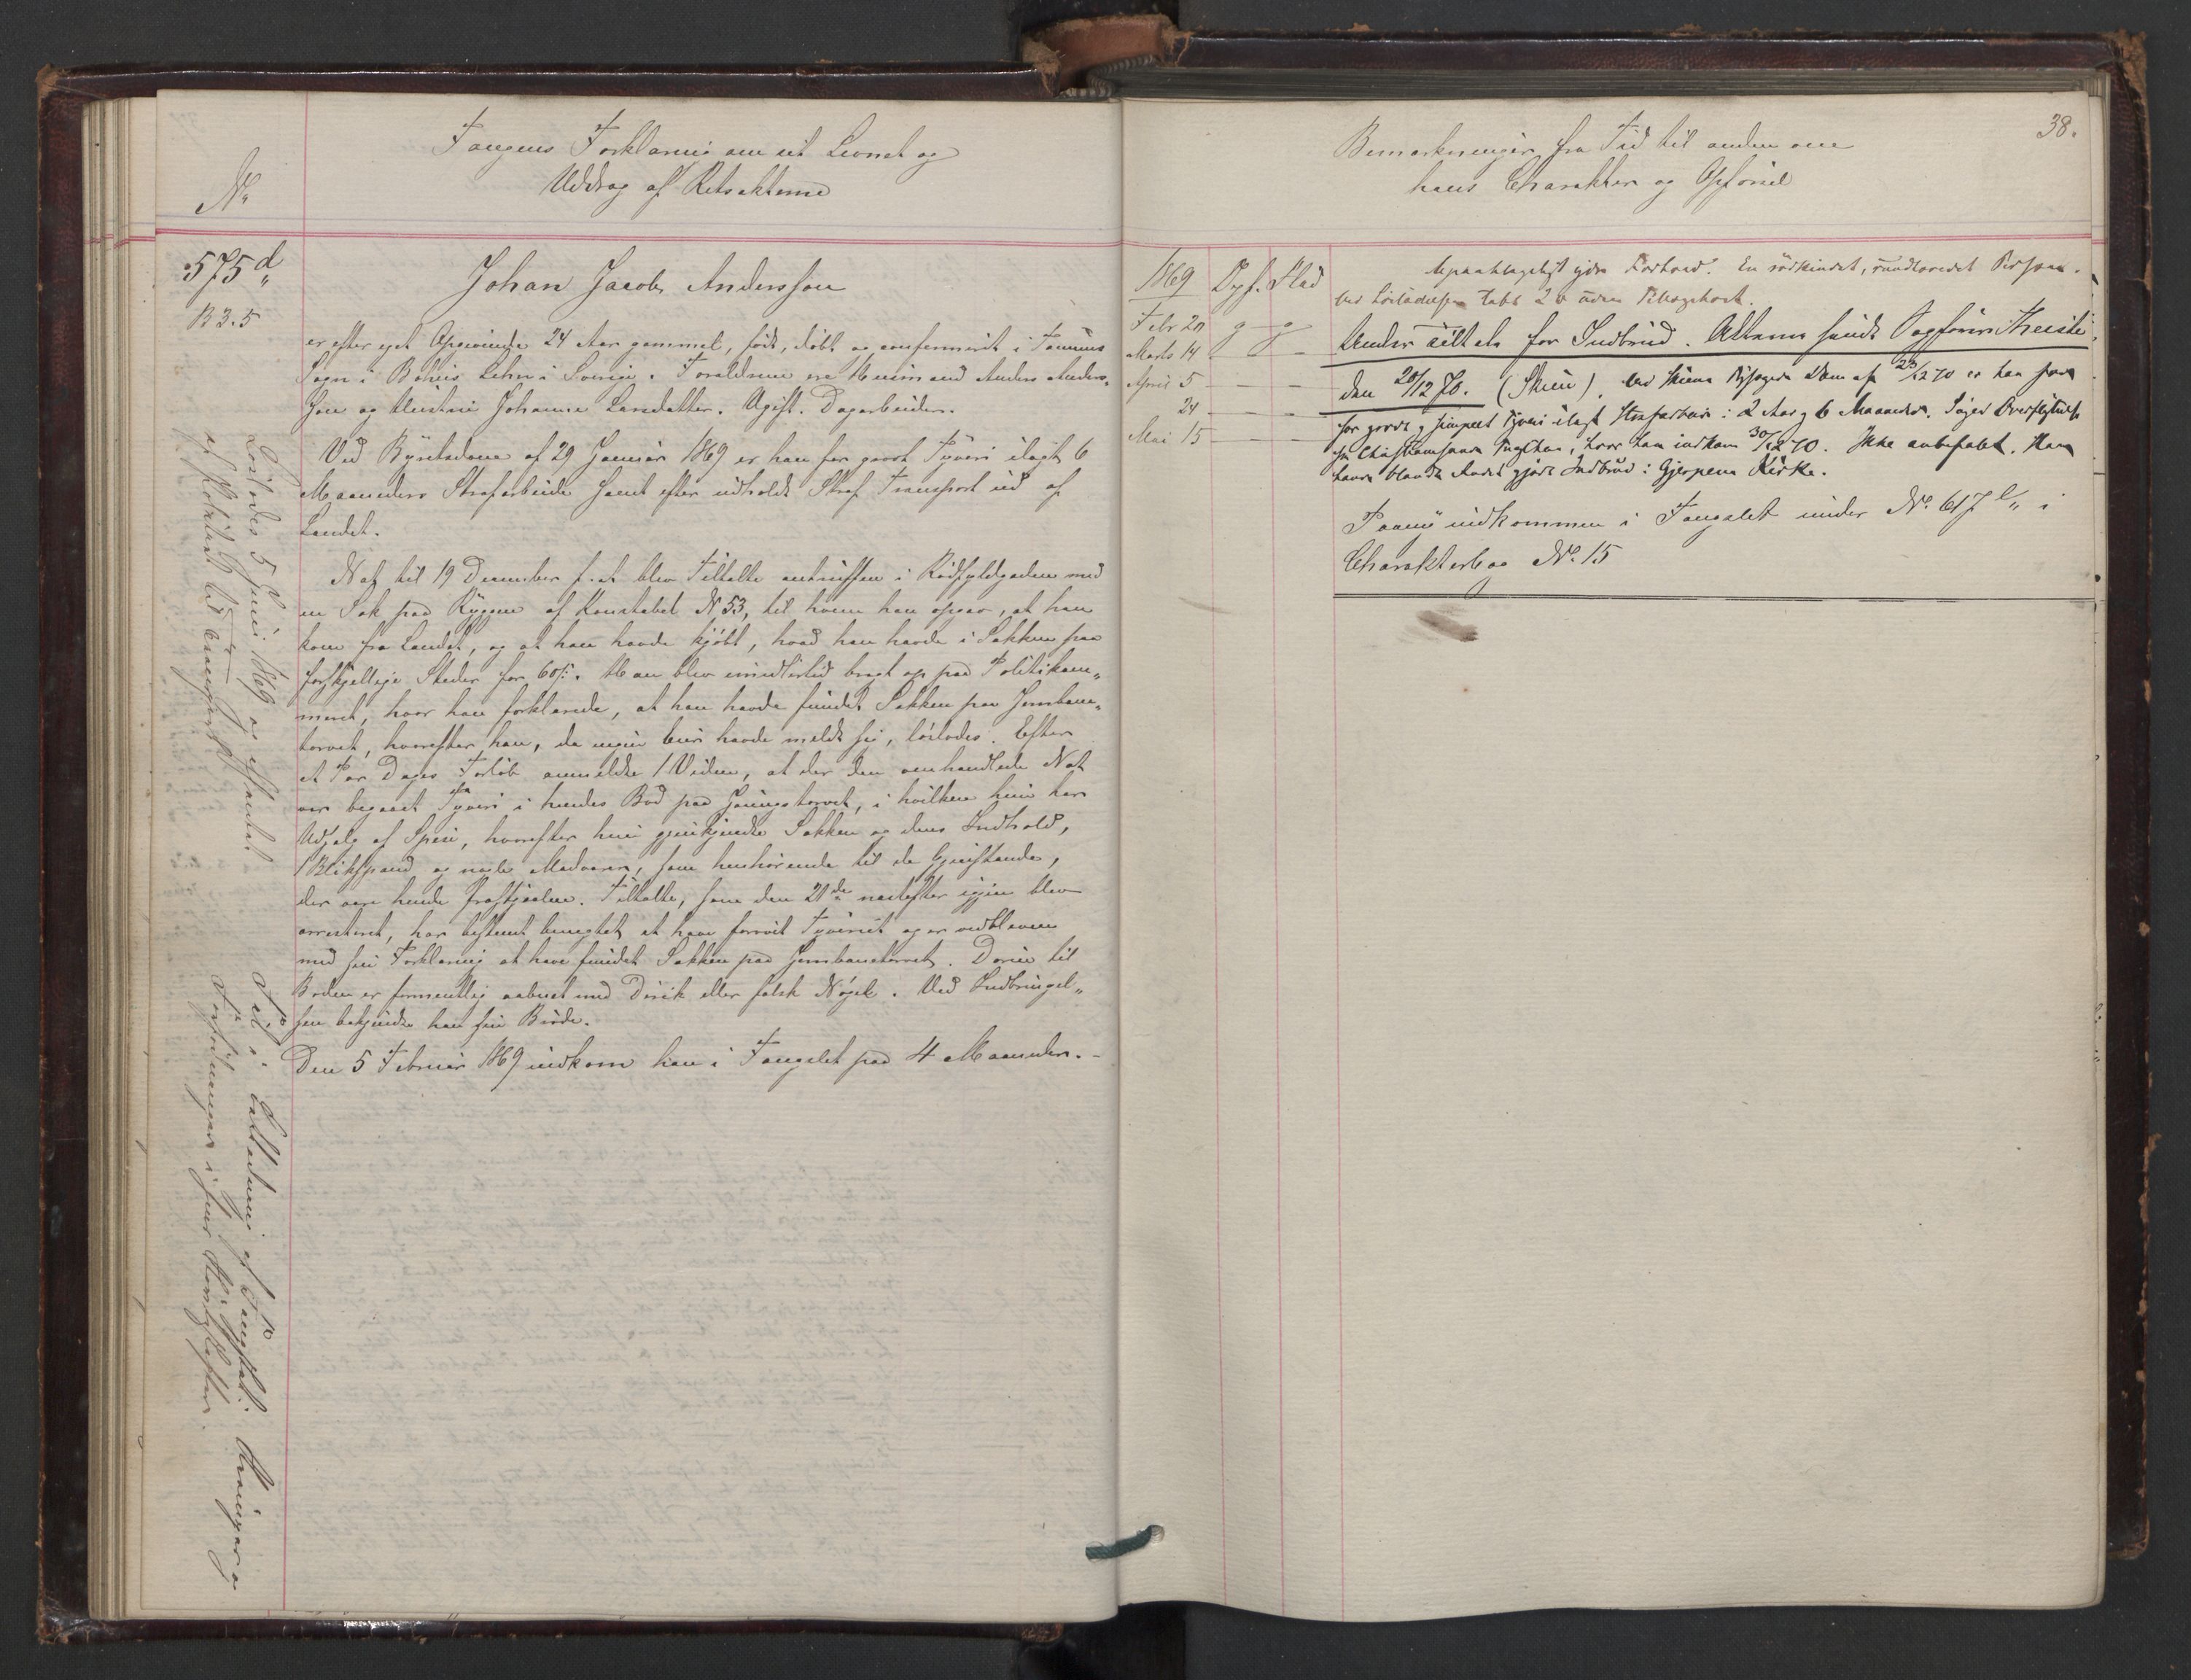 Fangens Forklaring om sit Levnet og
Uddrag af Retsakterne
No
575 d
B 3.5
Johan Jacob Andersson
er efter eget Opgivende 24 Aar gammel, født, døbt og confirmeret i Tanums
Sogn i Bohus Lehn i Sverige. Forældrene ere Huusmand Anders Anders-
son og Hustru Johanne Larsdatter. Ugift. Dagarbeider.
Ved Byretsdom af 29 Januar 1869 er han for grovt Tyveri ilagt 6
Maaneders Strafarbeide samt efter udholdt Straf Transport ud af
Landet.
Nat til 19 December f. A. blev Tiltalte antruffen i Rødfyldgaden med
en Sæk paa Ryggen af Konstabel N 53, til hvem han opgav, at han
kom fra Landet, og at han havde kjøbt, hvad han havde i Sækken paa
forskjellige Steder for 60 ß. Han blev imidlertid bragt op paa Politikam-
meret, hvor han forklarede, at han havde fundet Sækken paa Jernbane-
torvet, hvorefter han, da ingen Eier havde meldt sig, løslodes. Efter
et Par Dages Forløb anmeldte 1 Vidne, at der den omhandlede Nat
var begaaet Tyveri i hendes Bod paa Grønningstorvet, i hvilken hun har
Udsalg af Spise, hvorefter hun gjenkjendte Sækken og dens Indhold,
1 Blikspand og nogle Madvarer, som henhørende til de Gjenstande,
der vare hende frastjaalne. Tiltalte, som den 21de næstefter igjen blev
arresteret, har bestemt benegtet at have forøvet Tyveriet og er vedbleven
med sin Forklaring at have fundet Sækken paa Jernbanetorvet. Døren til
Boden er formentlig aabnet med Dirik eller falsk Nøgle. Ved Indbringel-
sen bekjendte han sin Brøde.
Den 5 Februar 1869 indkom han i Fængslet paa 4 Maaneder.
Løslodes 5 Juni 1869 og afsendtes
af Politiet til
38.
Bemærkninger fra Tid til anden om
hans Charakter og Opførsel
1869 Opf. Flid
Febr 20 g g
Marts 14 - -
April 5 - -
24 - -
Mai 15 - -
Upaaklageligt ydre Forhold. En rødkindet, rundlavedet Person.
Ved Løsladelsen
Under Tiltale for Indbrud. Attesten sendt Sagfører Theiste
den 20/12 70. (Skien). Ved Skiens Bysogns Dom af 23/12 70 er han for
for grovt og simpelt Tyveri ilagt Strafarbeide i 2 Aar og 6 Maaneder.
Christianssands Tugthus, hvor han indkom 30/12 70. Ikke anbefalet. Han
havde blandt Andet gjort Indbrud i Gjerpens Kirke.
Paany indkommen i Fængslet under No. 617 e i
Charakterbog No. 15